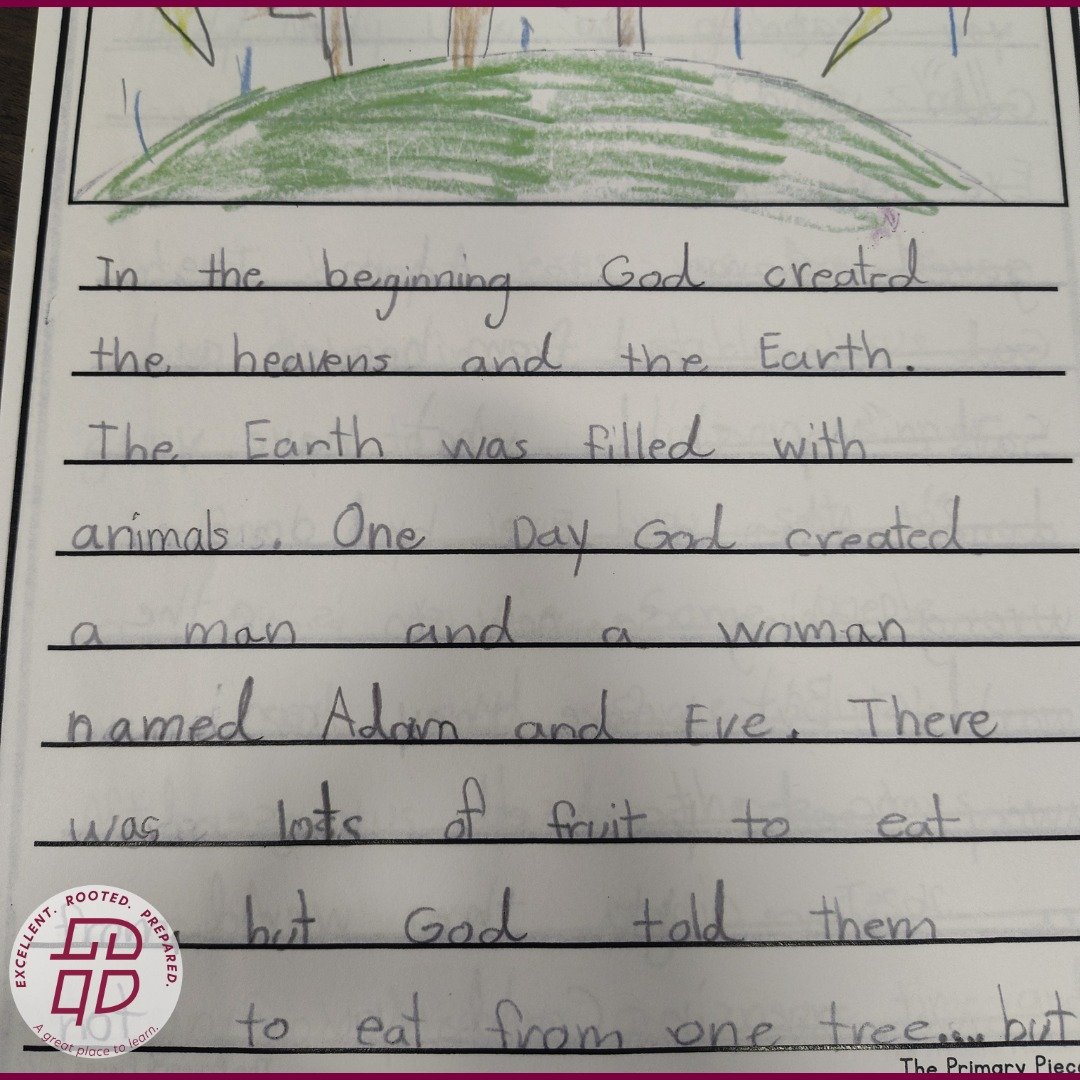 In the beginning God created
the heavens and the Earth.
The Earth was filled with
animals. One Day God created
a man and a woman
named Adam and Eve. There
was lots of fruit to eat
but God told them
to eat from one tree.... but
The Primary Piec
EXCELLENT. ROOTED. PREPARED.
A great place to learn.